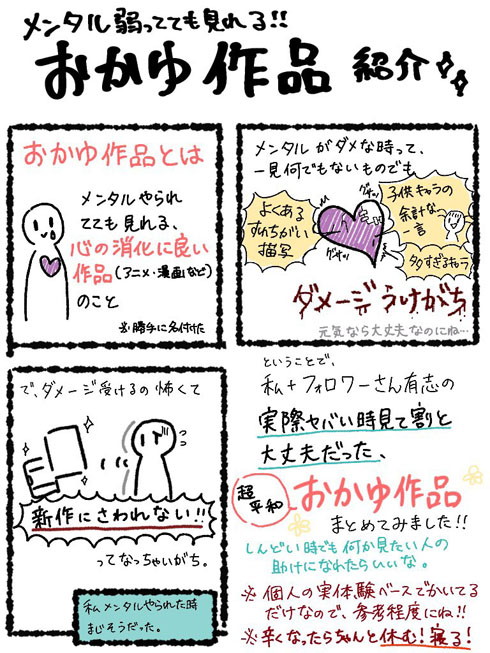 メンタル弱ってても見れる!!
おかゆ作品 紹介
おかゆ作品とは
メンタルやられ
てても見れる、
心の消化に良い
作品(アニメ・漫画など)
のこと
※勝手に名付けた
メンタルがダメな時って、
一見何でもないものでも
よくある
すれちがい
描写
グサッ
グサッ
グサッ
子供キャラの
余計な
一言
多すぎるキャラ
ダメージうけがち
元気なら大丈夫なのにね…
で、ダメージ受けるの怖くて
新作にさわれない!!
ってなっちゃいがち。
私メンタルやられた時
まじそうだった。
ということで、
私+フォロワーさん有志の
実際ヤバい時見て割と
大丈夫だった、
超
平和
おかゆ作品
まとめてみました!!
しんどい時でも何か見たい人の
助けになれたらいいな。
※個人の実体験ベースでかいてる
だけなので、参考程度にね!!
※辛くなったらちゃんと休む!寝る!